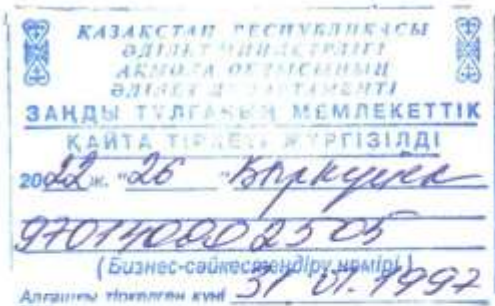 ҚАЗАҚСТАН РЕСПУБЛИКАСЫ
ӘДІЛЕТ МИНИСТРЛІГІ
АҚМОЛА ОБЛЫСЫНЫҢ
ӘДІЛЕТ ДЕПАРТАМЕНТІ
ЗАҢДЫ ТҰЛҒАНЫҢ МЕМЛЕКЕТТІК
ҚАЙТА ТІРКЕУІ ЖҮРГІЗІЛДІ
2022 ж. "26" қыркүйек
970140002505
(Бизнес-сәйкестендіру нөмірі)
Алғашқы тіркелген күні 31 01. 1997